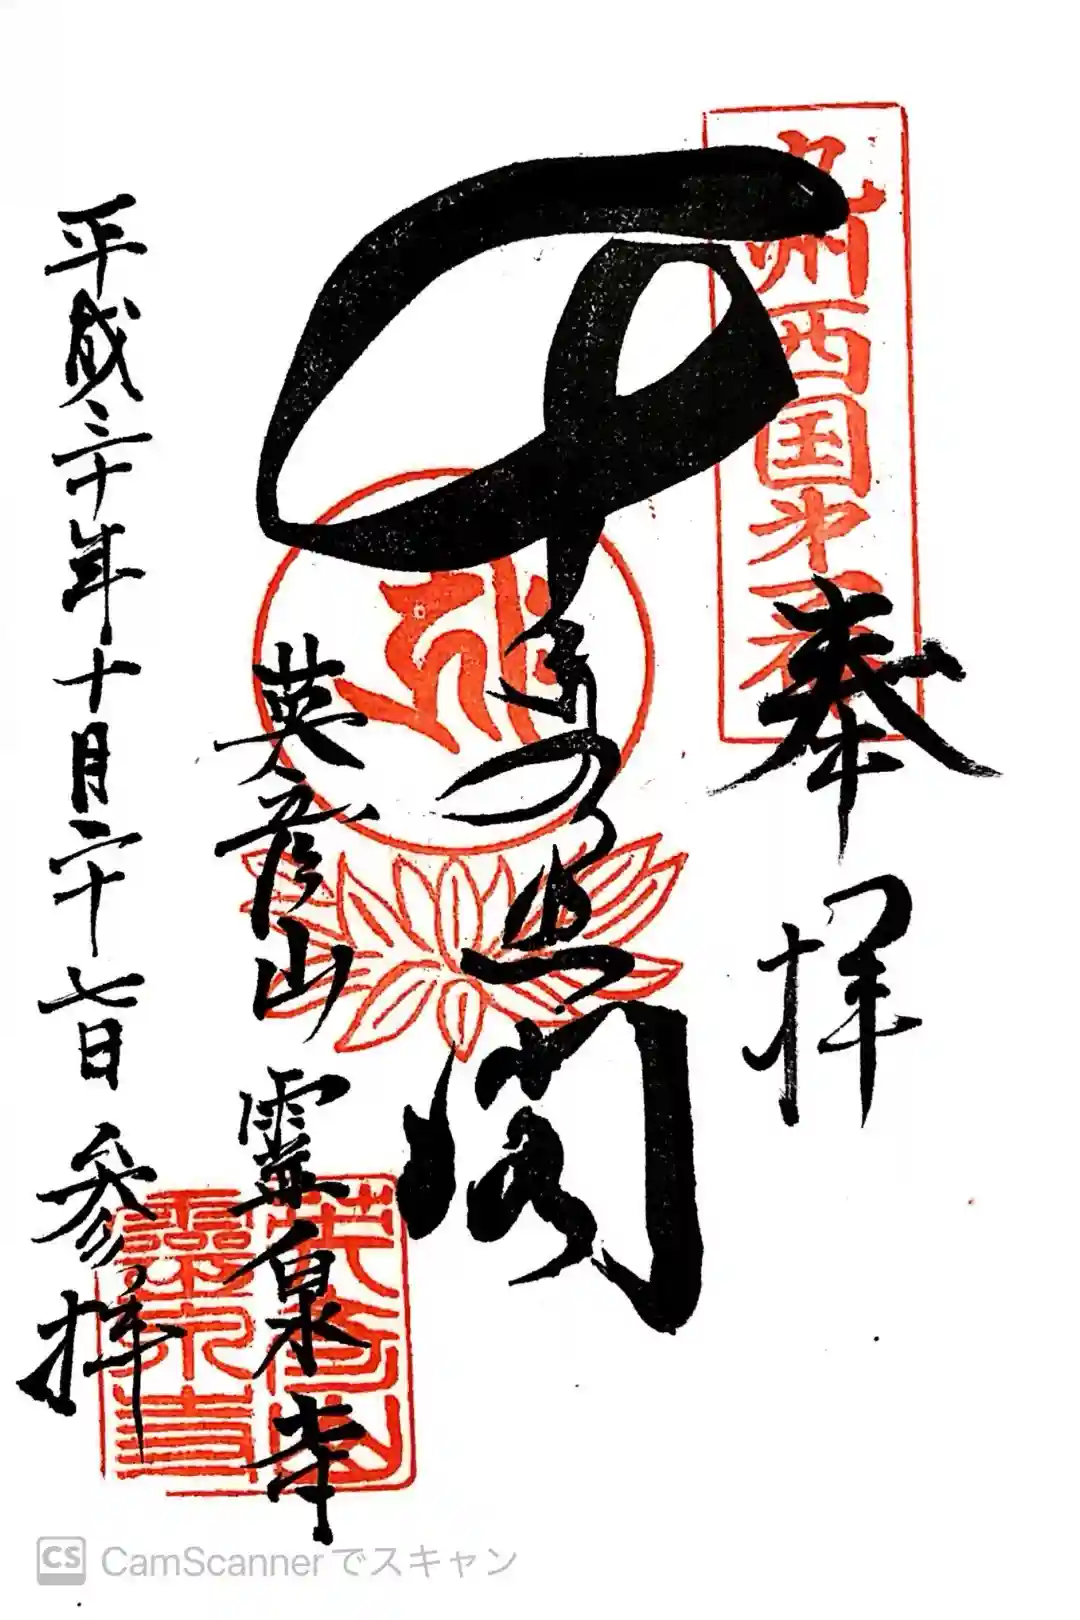 九州西国第一番
奉拝
閣
英彦山 霊泉寺
英彦山
靈泉寺
平成三十年十月二十七日 参拝
CS CamScannerでスキャン